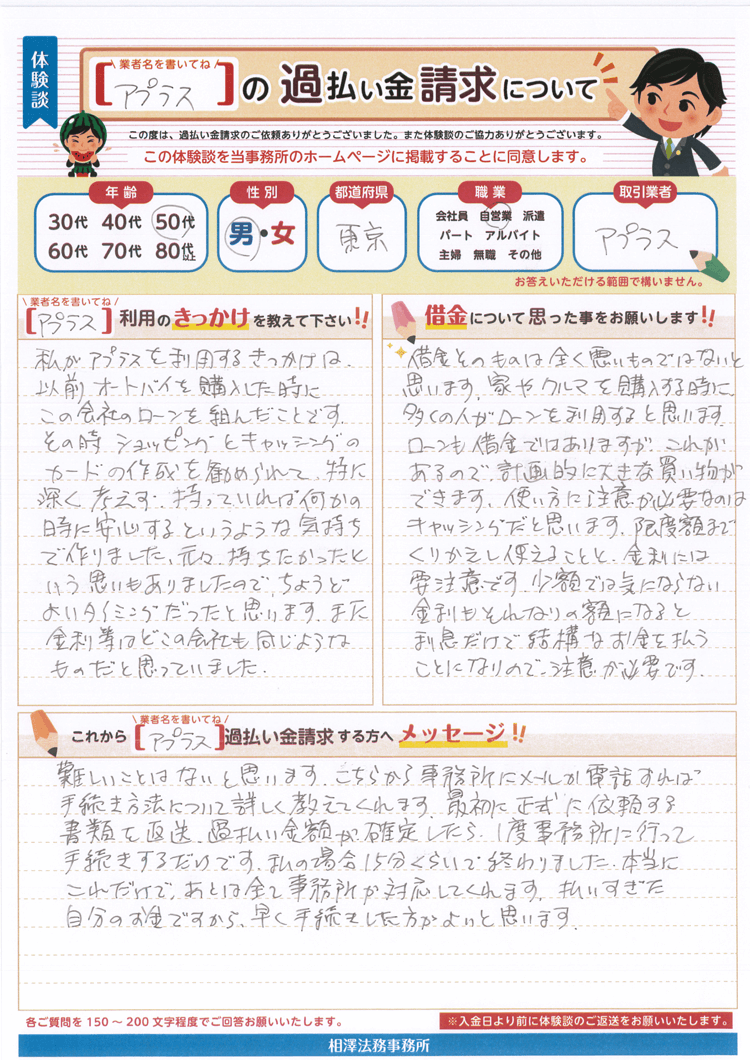 体験談
\ 業者名を書いてね /
[アプラス]の過払い金請求について
この度は、過払い金請求のご依頼ありがとうございました。また体験談のご協力ありがとうございます。
この体験談を当事務所のホームページに掲載することに同意します。
年齢
30代 40代 50代
60代 70代 80代以上
性別
男・女
都道府県
東京
職業
会社員 自営業 派遣
パート アルバイト
主婦 無職 その他
取引業者
アプラス
お答えいただける範囲で構いません。
\ 業者名を書いてね /
[アプラス]利用のきっかけを教えて下さい!!
私がアプラスを利用するきっかけは、
以前オートバイを購入した時に
この会社のローンを組んだことです。
その時ショッピングとキャッシングの
カードの作成を勧められて、特に
深く考えず、持っていれば何かの
時に安心するというような気持ち
で作りました、元々、持ちたかったと
いう思いもありましたので、ちょうど
よいタイミングだったと思います。また
金利等はどこの会社も同じような
ものだと思っていました。
借金について思った事をお願いします!!
借金そのものは全く悪いものではないと
思います。家やクルマを購入する時に
多くの人がローンを利用すると思います。
ローンも借金ではありますが、これが
あるので、計画的に大きな買い物が
できます、使い方に注意が必要なのは
キャッシングだと思います。限度額まで
くりかえし使えることと、金利には
要注意です。少額では気にならない
金利もそれなりの額になると
利息だけで結構なお金を払う
ことになりので、注意が必要です。
\ 業者名を書いてね /
これから[アプラス]過払い金請求する方へメッセージ!!
難しいことはないと思います。こちらから事務所にメールか電話すれば
手続き方法について詳しく教えてくれます。最初に正式に依頼する
書類を返送、過払い金額が確定したら、1度事務所に行って
手続きするだけです。私の場合15分くらいで終わりました。本当に
これだけで、あとは全て事務所が対応してくれます。払いすぎた
自分のお金ですから、早く手続きした方がよいと思います。
各ご質問を150〜200文字程度でご回答お願いいたします。
※入金日より前に体験談のご返送をお願いいたします。
相澤法務事務所